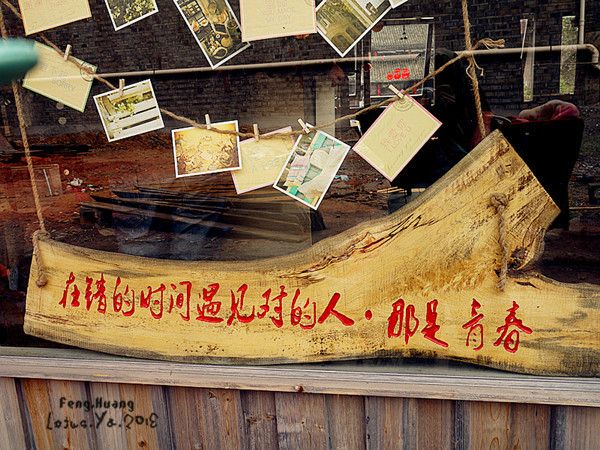 在错的时间遇见对的人·那是青春
Feng.Huang
Lotus.Ya.2013